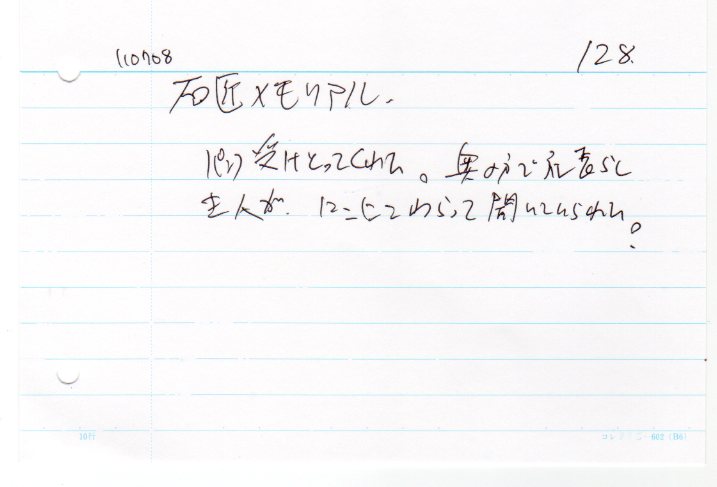 110708
128.
石匠メモリアル.
パンフ受けとってくれた。奥の方で
主人が、にこにこわらって聞いていられた。
10行
602 (B6)